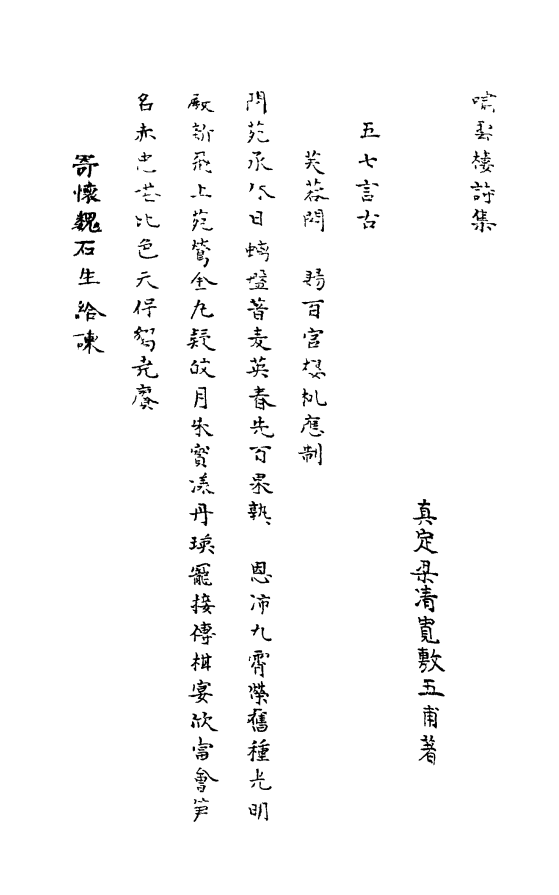 嘯雲樓詩集
真定梁清寬敷五甫著
五七言古
芙蓉闕 賜百官櫻桃應制
閬苑承 日螭盤薦麦英春先百果熟 恩沛九霄榮舊種光明
殿新飛上苑鶯金丸疑皎月朱實溱丹瑛寵接傳柑宴欣當會笋
名赤忠 比色天保 堯賡
寄懷魏石生給諫